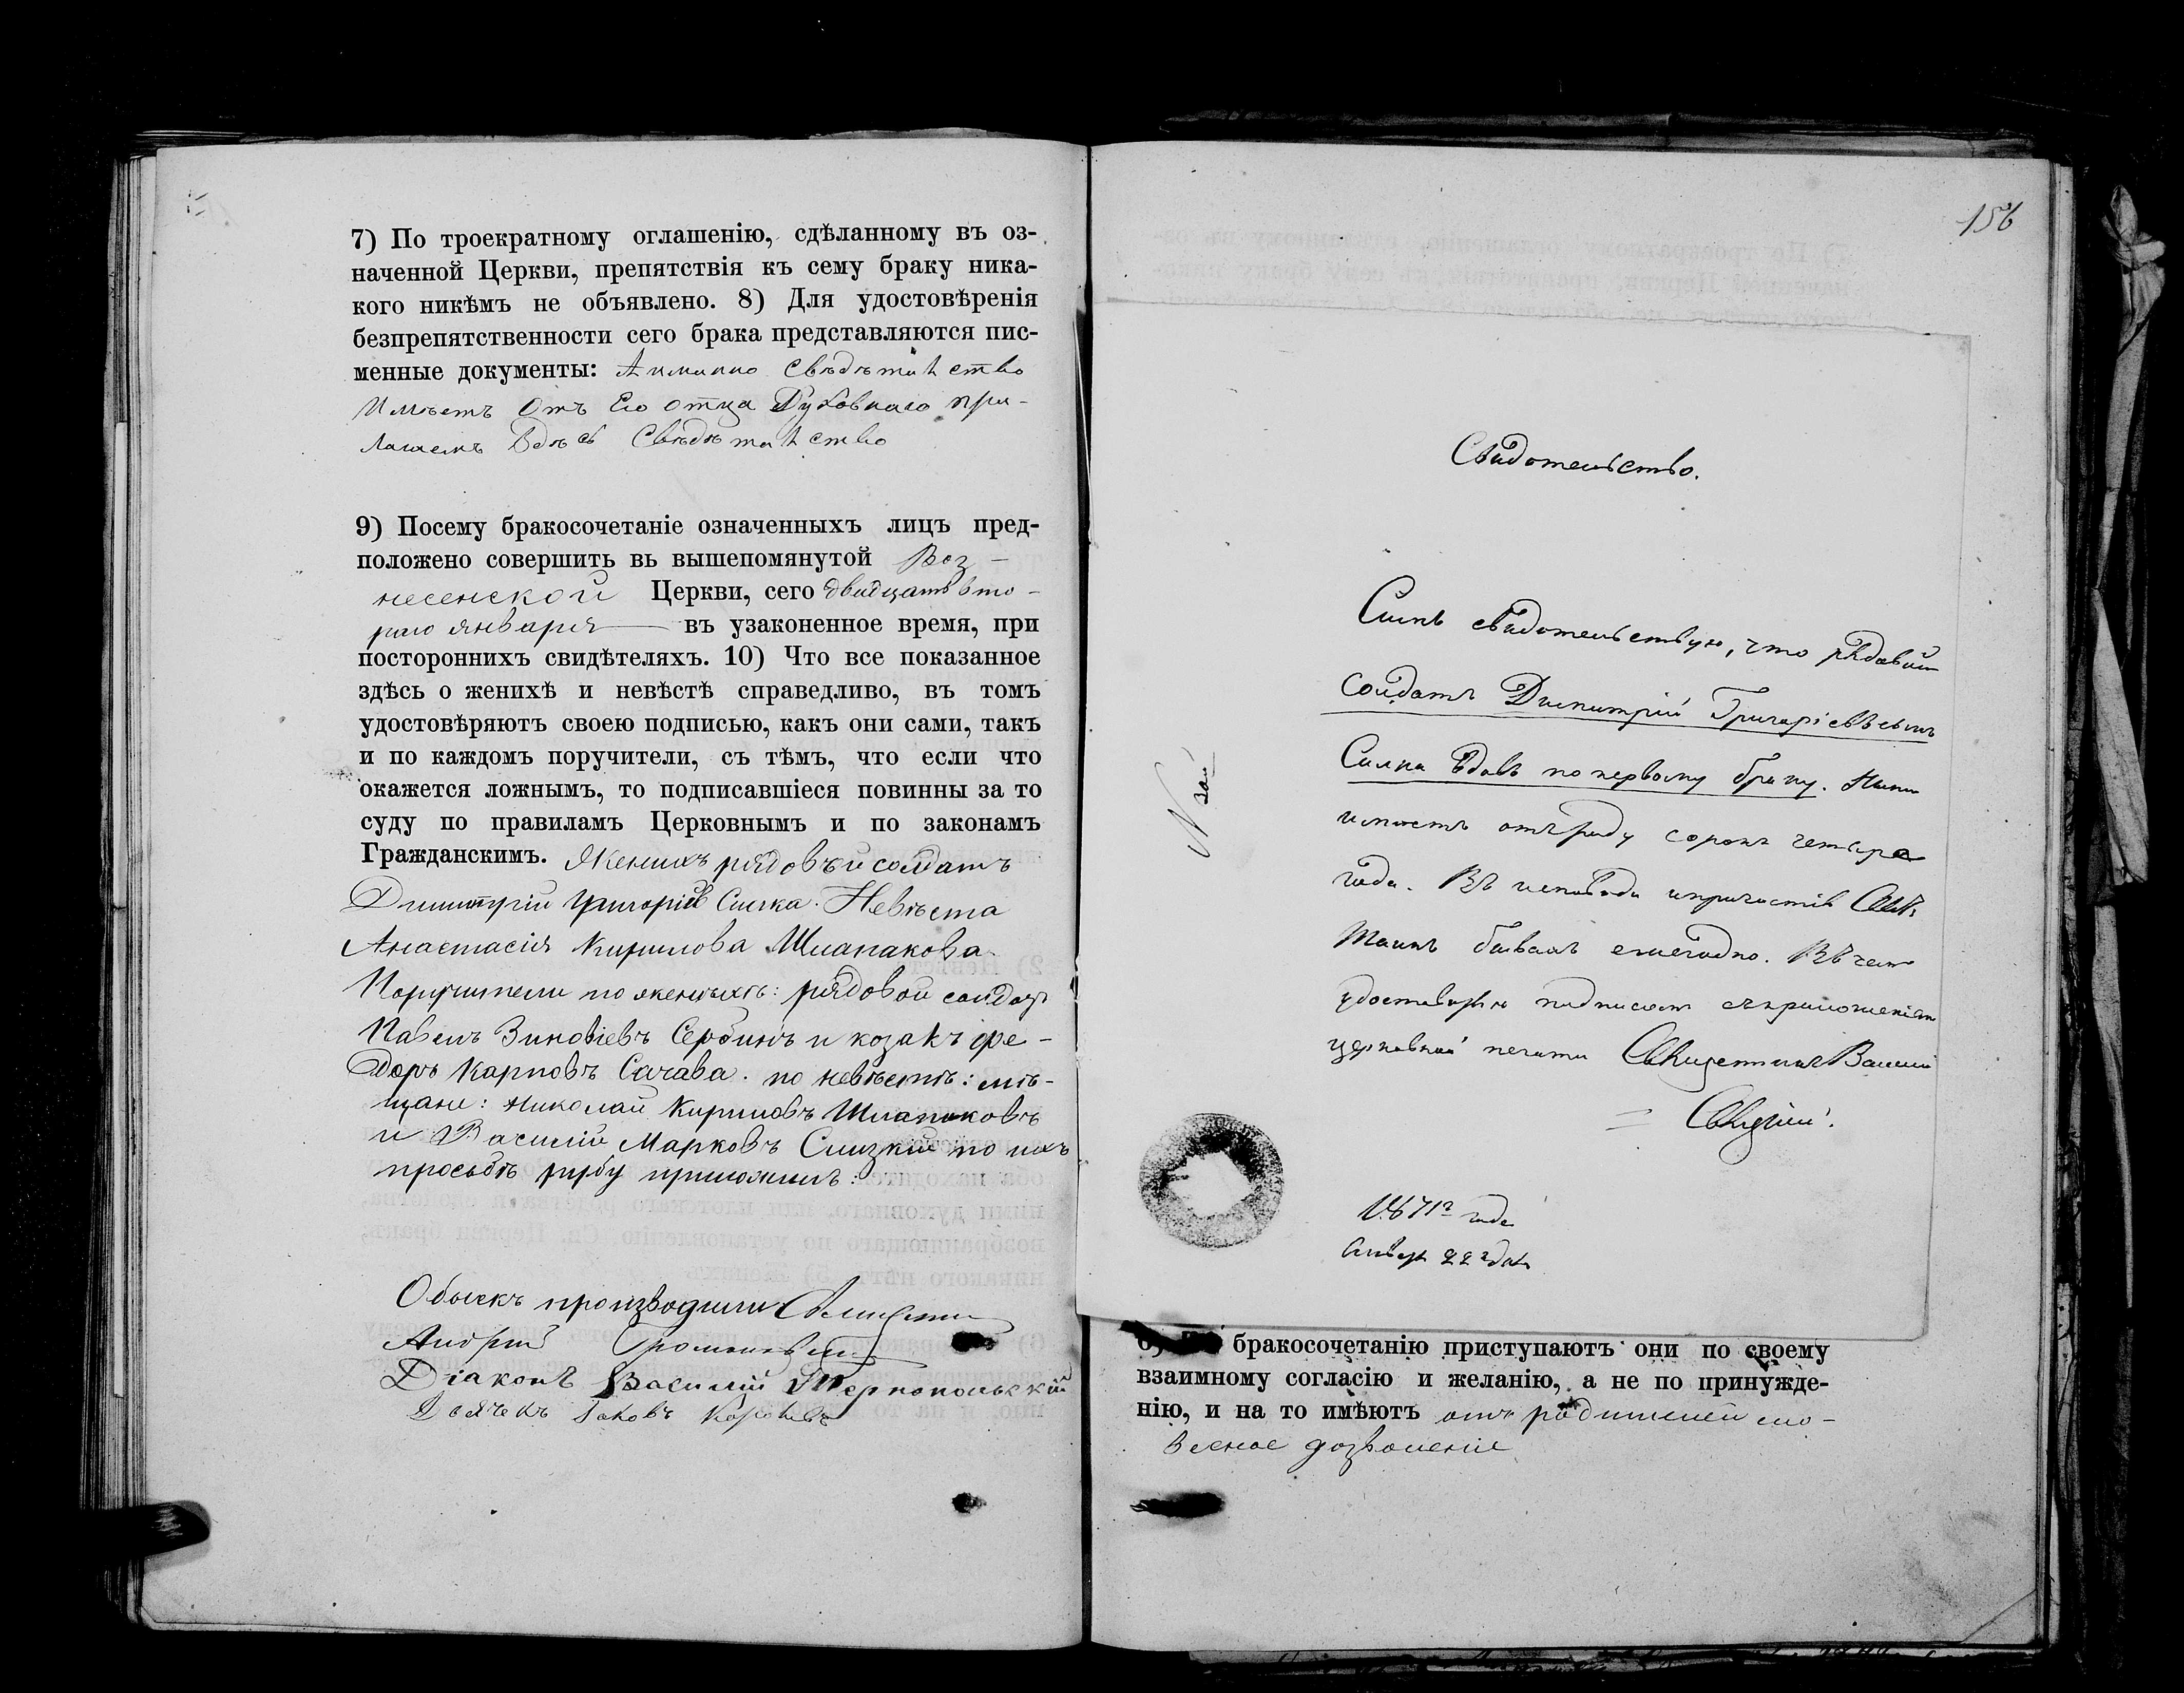 7) По троекратному оглашенію, сдѣланному въ оз-
наченной Церкви, препятствія къ сему браку ника-
кого никѣмъ не объявлено. 8) Для удостовѣренія
безпрепятственности сего брака представляются пис-
менные документы: свѣдѣтелство
Имѣетъ Отъ Его отца Духовнаго при-
лагаемъ Здѣсь Свѣдѣтелство
9) Посему бракосочетаніе означенныхъ лицъ пред-
положено совершить вь вышепомянутой Воз-
несенской Церкви, сего двадцать вто-
раго января въ узаконенное время, при
постороннихъ свидѣтеляхъ. 10) Что все показанное
здѣсь о женихѣ и невѣстѣ справедливо, въ томъ
удостовѣряютъ своею подписью, какъ они сами, такъ
и по каждомъ поручители, съ тѣмъ, что если что
окажется ложнымъ, то подписавшіеся повинны за то
суду по правиламъ Церковнымъ и по законамъ
Гражданскимъ. Женихъ рядовъй солдатъ
Димитрій Григоріев Силка. Невѣста
Анастасія Кирилова Шлапакова
Поручители по женихѣ: рядовой солдатъ
Павелъ Зиновіевъ Сербинъ и козакъ Фе-
доръ Карповъ Сачава. по невѣстѣ: мѣ-
щане: Николай Кириловъ Шлапаковъ
и Василій Марковъ Слизкій по ихъ
просьбѣ руку приложилъ:
Обыскъ производили Священникъ
Андрей
Діаконъ Василій Тернопольскій
Дьячекъ Іаковъ
156
Свидотельство.
N
Симъ свидотельствую, что рядовый
солдатъ Димитрій Григоріевъ сынъ
Силка вдовъ по первому браку. Ныне
имѣетъ отъ роду сорокъ четыре
года. Въ исповѣди и причастіи Свят.
Таинъ бывалъ ежегодно. Въ чемъ
удостовѣряю подписомъ съ приложеніем
церковной печати Священник Василій
1871го года
Января 22го дня
6) бракосочетанію приступаютъ они по своему
взаимному согласію и желанію, а не по принужде-
нію, и на то имѣютъ отъ родителей сло-
весное дозволеніе